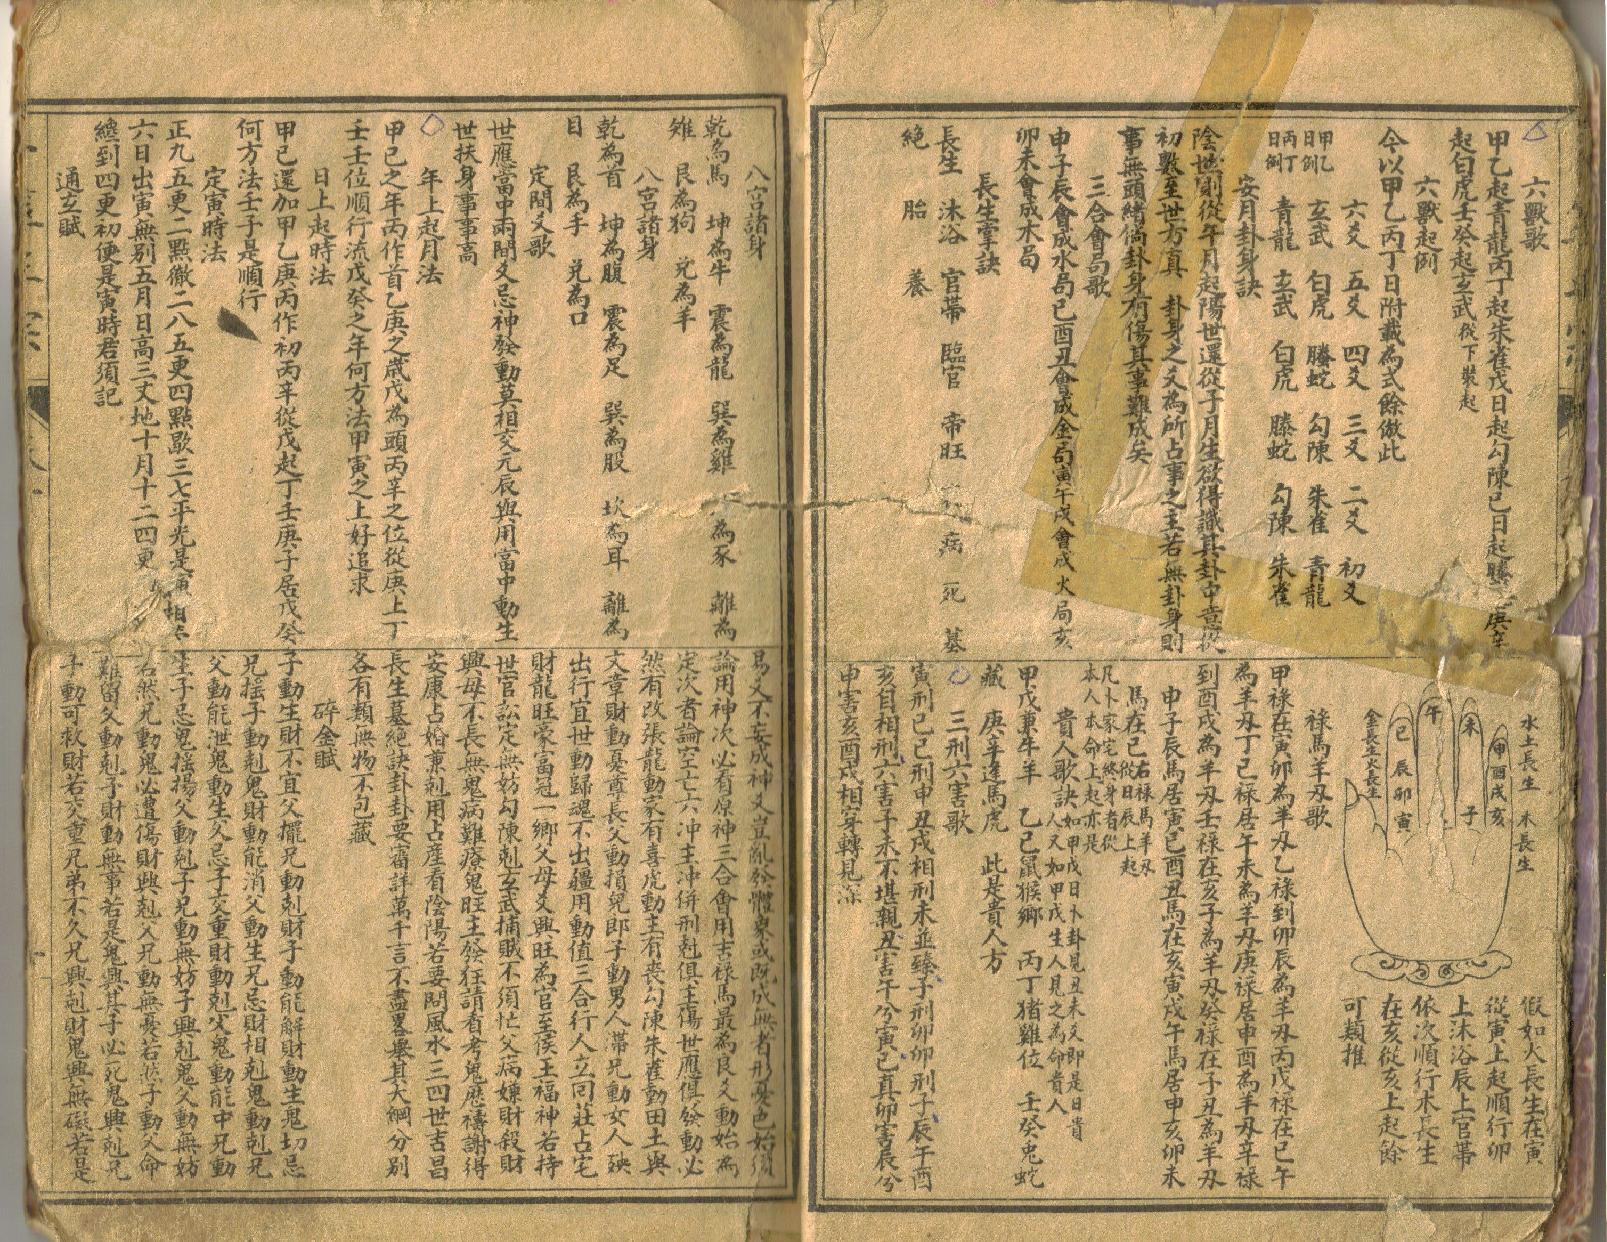 六獸歌
甲乙起青龍丙丁起朱雀戊日起勾陳己日起螣蛇庚辛
起白虎壬癸起玄武從下裝起
六獸起例
今以甲乙丙丁日附載為式餘倣此
六爻 五爻 四爻 三爻 二爻 初爻
甲乙日例 玄武 白虎 螣蛇 勾陳 朱雀 青龍
丙丁日例 青龍 玄武 白虎 螣蛇 勾陳 朱雀
安月卦身訣
陰世則從午月起陽世還從子月生欲得識其卦中意從
初數至世方真 卦身之爻為所占事之主若無卦身則
事無頭緒倘卦身有傷其事難成矣
三合會局歌
申子辰會成水局巳酉丑會成金局寅午戌會成火局亥
卯未會成木局
長生掌訣
長生 沐浴 官帶 臨官 帝旺 病 死 墓
絶 胎 養
水土長生 木長生
申酉戌亥
未 子
午
巳 辰 卯 寅
金長生火長生
假如火長生在寅
從寅上起順行卯
上沐浴辰上官帶
依次順行木長生
在亥從亥上起餘
可類推
祿馬羊刃歌
甲祿在寅卯為羊刃乙祿到卯辰為羊刃丙戊祿在巳午
為羊刃丁己祿居午未為羊刃庚祿居申酉為羊刃辛祿
到酉戌為羊刃壬祿在亥子為羊刃癸祿在子丑為羊刃
申子辰馬居寅巳酉丑馬在亥寅戌午馬居申亥卯未
馬在巳右祿馬羊刃從日辰上起
凡卜家宅終身者從本人本命上起亦是
貴人歌訣如甲戌日卜卦見丑未爻即是日貴人又如甲戌生人見之為命貴人
甲戊兼牛羊 乙己鼠猴鄉 丙丁猪雞位 壬癸兔蛇
藏 庚辛逢馬虎 此是貴人方
三刑六害歌
寅刑巳巳刑申丑戌相刑未並臻子刑卯卯刑子辰午酉
亥自相刑六害子未不堪親丑害午兮寅巳真卯害辰兮
申害亥酉戌相穿轉見深
八宮諸身
乾為馬 坤為牛 震為龍 巽為雞 為豕 離為
雉 艮為狗 兌為羊
八宮諸身
乾為首 坤為腹 震為足 巽為股 坎為耳 離為
目 艮為手 兌為口
定間爻歌
世應當中兩間爻忌神發動莫相交元辰與用當中動生
世扶身事事高
年上起月法
甲己之年丙作首乙庚之歲戊為頭丙辛之位從庚上丁
壬壬位順行流戊癸之年何方法甲寅之上好追求
日上起時法
甲己還加甲乙庚丙作初丙辛從戊起丁壬庚子居戊癸
何方法壬子是順行
定寅時法
正九五更二點徹二八五更四點歇三七平光是寅
六日出寅無別五月日高三丈地十月十二四更
纔到四更初便是寅時君須記
通玄賦
易爻不妄成神爻豈亂發體象或既成無者形憂色始須
論用神次必看原神三合會用吉祿馬最為良爻動始為
定次者論空亡六冲主冲併刑剋俱主傷世應俱發動必
然有改張龍動家有喜虎動主有喪勾陳朱雀動田土與
文章財動憂尊長父動損兒郎子動男人滯兄動女人殃
出行宜世動歸魂不出疆用動值三合行人立回莊占宅
財龍旺豪富冠一鄉父母爻興旺為官至侯王福神若持
世官訟定無妨勾陳剋玄武捕賊不須忙父病嫌財殺財
興母不長無鬼病難療鬼旺主發狂請看考鬼歷禱謝得
安康占婚兼剋用占產看陰陽若要問風水三四世吉昌
長生墓絕訣卦卦要審詳萬千言不盡畧舉其大綱分別
各有類無物不包藏
碎金賦
子動生財不宜父擺兄動剋財子動能解財動生鬼切忌
兄搖子動剋鬼財動能消父動生兄忌財相剋鬼動剋兄
父動能泄鬼動生父忌子交重財動剋父鬼動能中兄動
生子忌鬼搖揚父動剋子兄動無妨子興剋鬼父動無妨
若然兄動鬼必遭傷財興剋父兄動無憂若然子動父命
難留父動剋子財動無事若是鬼興其子必死鬼興剋兄
子動可救財若交重兄弟不久兄興剋財鬼興無礙若是